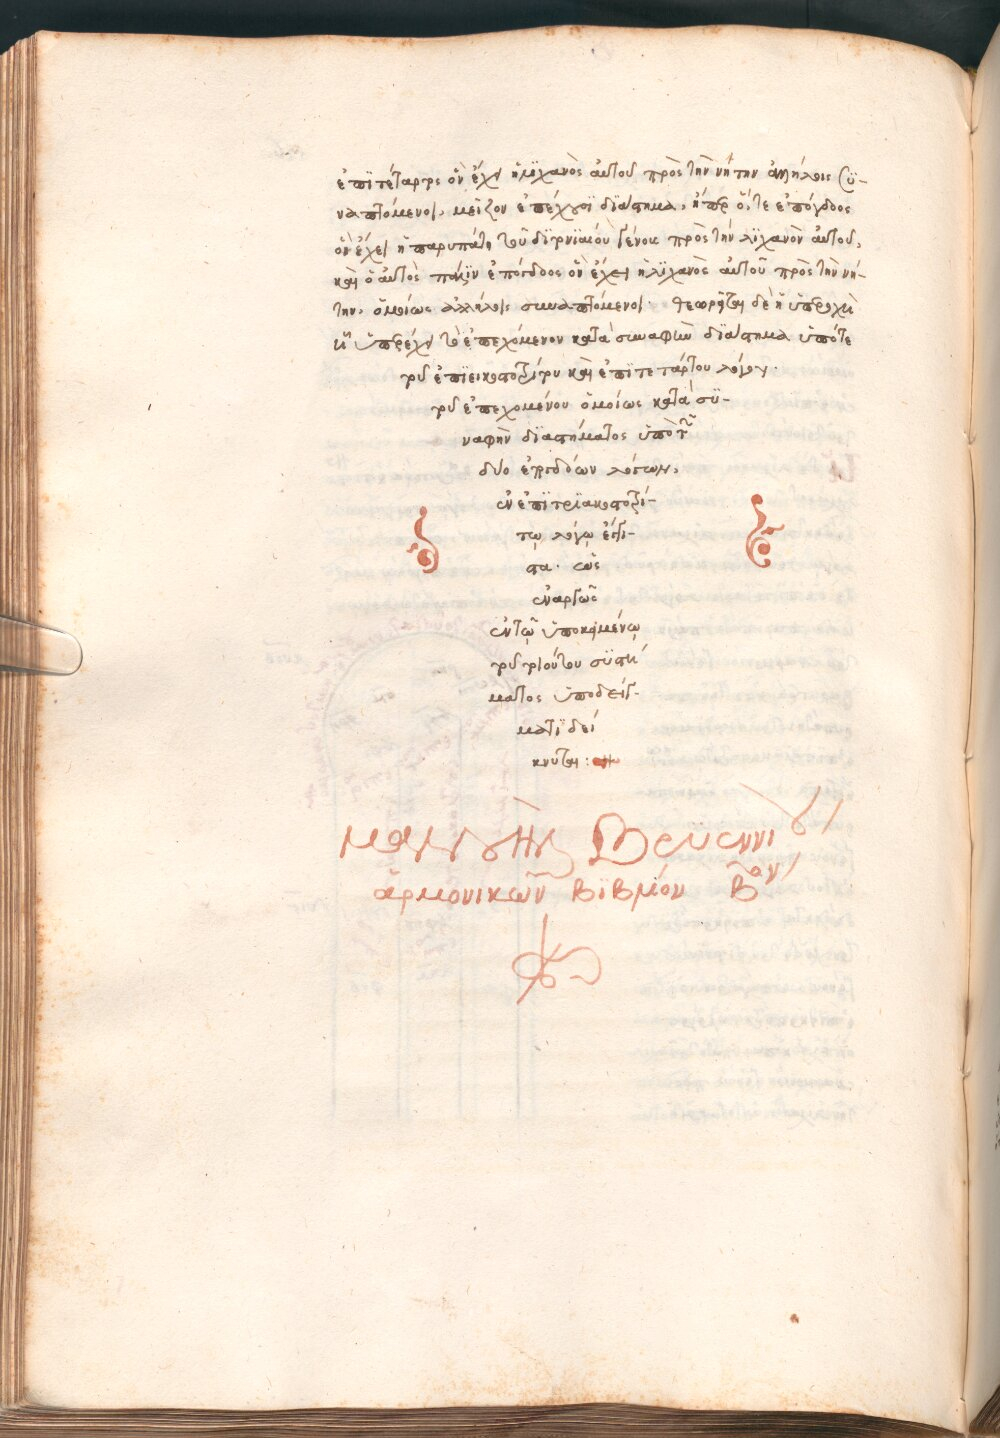 ἐπιτέταρτος ὃν ἔχει ἡ λιχανὸς αὐτοῦ πρὸς τὴν νήτην ἀλλήλοις συ-
ναπτόμενοι, μεῖζον ἐπέχουσι διάστημα, ἤπερ ὅ, τε ἐπόγδοος
ὃν ἔχει ἡ παρυπάτη τοῦ διτονιαίου γένους πρὸς τὴν λιχανὸν αὐτοῦ,
καὶ ὁ αὐτὸς πάλιν ἐπόγδοος ὃν ἔχει ἡ λιχανὸς αὐτοῦ πρὸς τὴν νή-
την, ὁμοίως ἀλλήλοις συναπτόμενοι· θεωρεῖται δὲ ἡ ὑπεροχὴ
ᾗ ὑπερέχει τὸ ἐπεχόμενον κατὰ συναφὴν διάστημα ὑπό τε
τοῦ ἐπιεικοστοεβδόμου καὶ ἐπιτετάρτου λόγου·
τοῦ ἐπεχομένου ὁμοίως κατὰ συ-
ναφὴν διαστήματος ὑπὸ τῶν
δύο ἐπογδόων λόγων,
ἐν ἐπιτριακοστοεβδόμῳ
λόγῳ
ὡς
ἐναργῶς
ἐν τῷ ὑποκειμένῳ
τοῦ τοιούτου συστή
ματος ὑποδείγ-
ματι δεί
κνυται:
μανουὴλ Βρυεννίου
ἁρμονικῶν βιβλίον β̅ον